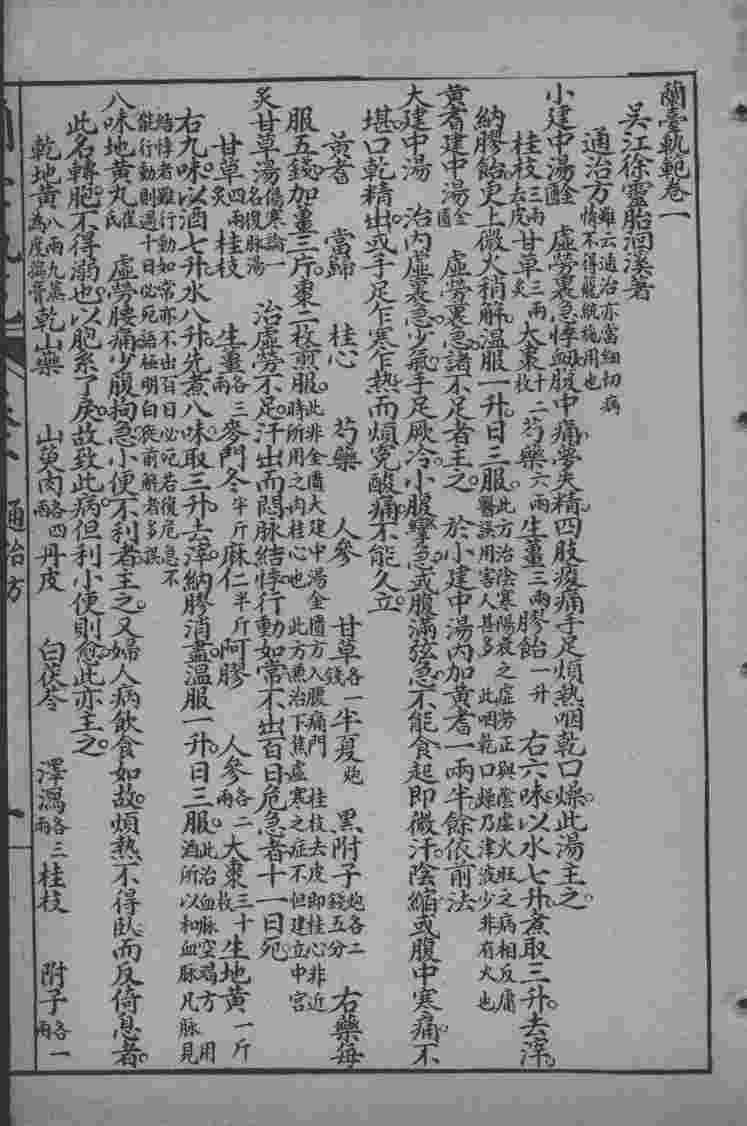 蘭臺軌範卷一
吳江徐靈胎洄溪著
通治方雖云通治亦當細切病情不得籠統施用也
小建中湯金匱 虛勞裏急悸衄腹中痛夢失精四肢痠痛手足煩熱咽乾口燥此湯主之
桂枝三兩去皮甘草三兩炙大棗十二枚芍藥六兩生薑三兩膠飴一升 右六味以水七升煮取三升去滓
納膠飴更上微火稍解溫服一升日三服此方治陰寒陽衰之虛勞正與陰虛火旺之病相反庸醫誤用害人甚多 此咽乾口燥乃津液少非有火也
黃耆建中湯金匱 虛勞裏急諸不足者主之 於小建中湯內加黃耆一兩半餘依前法
大建中湯 治內虛裏急少氣手足厥冷小腹攣急或腹滿弦急不能食起即微汗陰縮或腹中寒痛不
堪口乾精出或手足乍寒乍熱而煩寃酸痛不能久立
黃耆 當歸 桂心 芍藥 人參 甘草各一錢半夏炮 黑附子炮各二錢五分 右藥每
服五錢加薑三片棗二枚煎服此非金匱大建中湯金匱方入腹痛門 桂枝去皮即桂心非近時所用之肉桂心也 此方兼治下焦虛寒之症不但建立中宮
炙甘草湯傷寒論一名復脈湯 治虛勞不足汗出而悶脈結悸行動如常不出百日危急者十一日死
甘草四兩炙桂枝 生薑各三兩麥門冬半斤麻仁半斤阿膠 人參各二兩大棗三十枚生地黃一斤
右九味以酒七升水八升先煮八味取三升去滓納膠消盡溫服一升日三服此治血脈空竭方用酒所以和血脈凡脈見
結悸者雖行動如常亦不出百日必死若復危急不能行動則過十日必死語極明白從前解者多誤
八味地黃丸崔氏 虛勞腰痛少腹拘急小便不利者主之又婦人病飲食如故煩熱不得臥而反倚息者
此名轉胞不得溺也以胞系了戾故致此病但利小便則愈此亦主之
乾地黃八兩九蒸為度搗膏乾山藥 山萸肉各四兩丹皮 白茯苓 澤瀉各三兩桂枝 附子各一兩
通治方